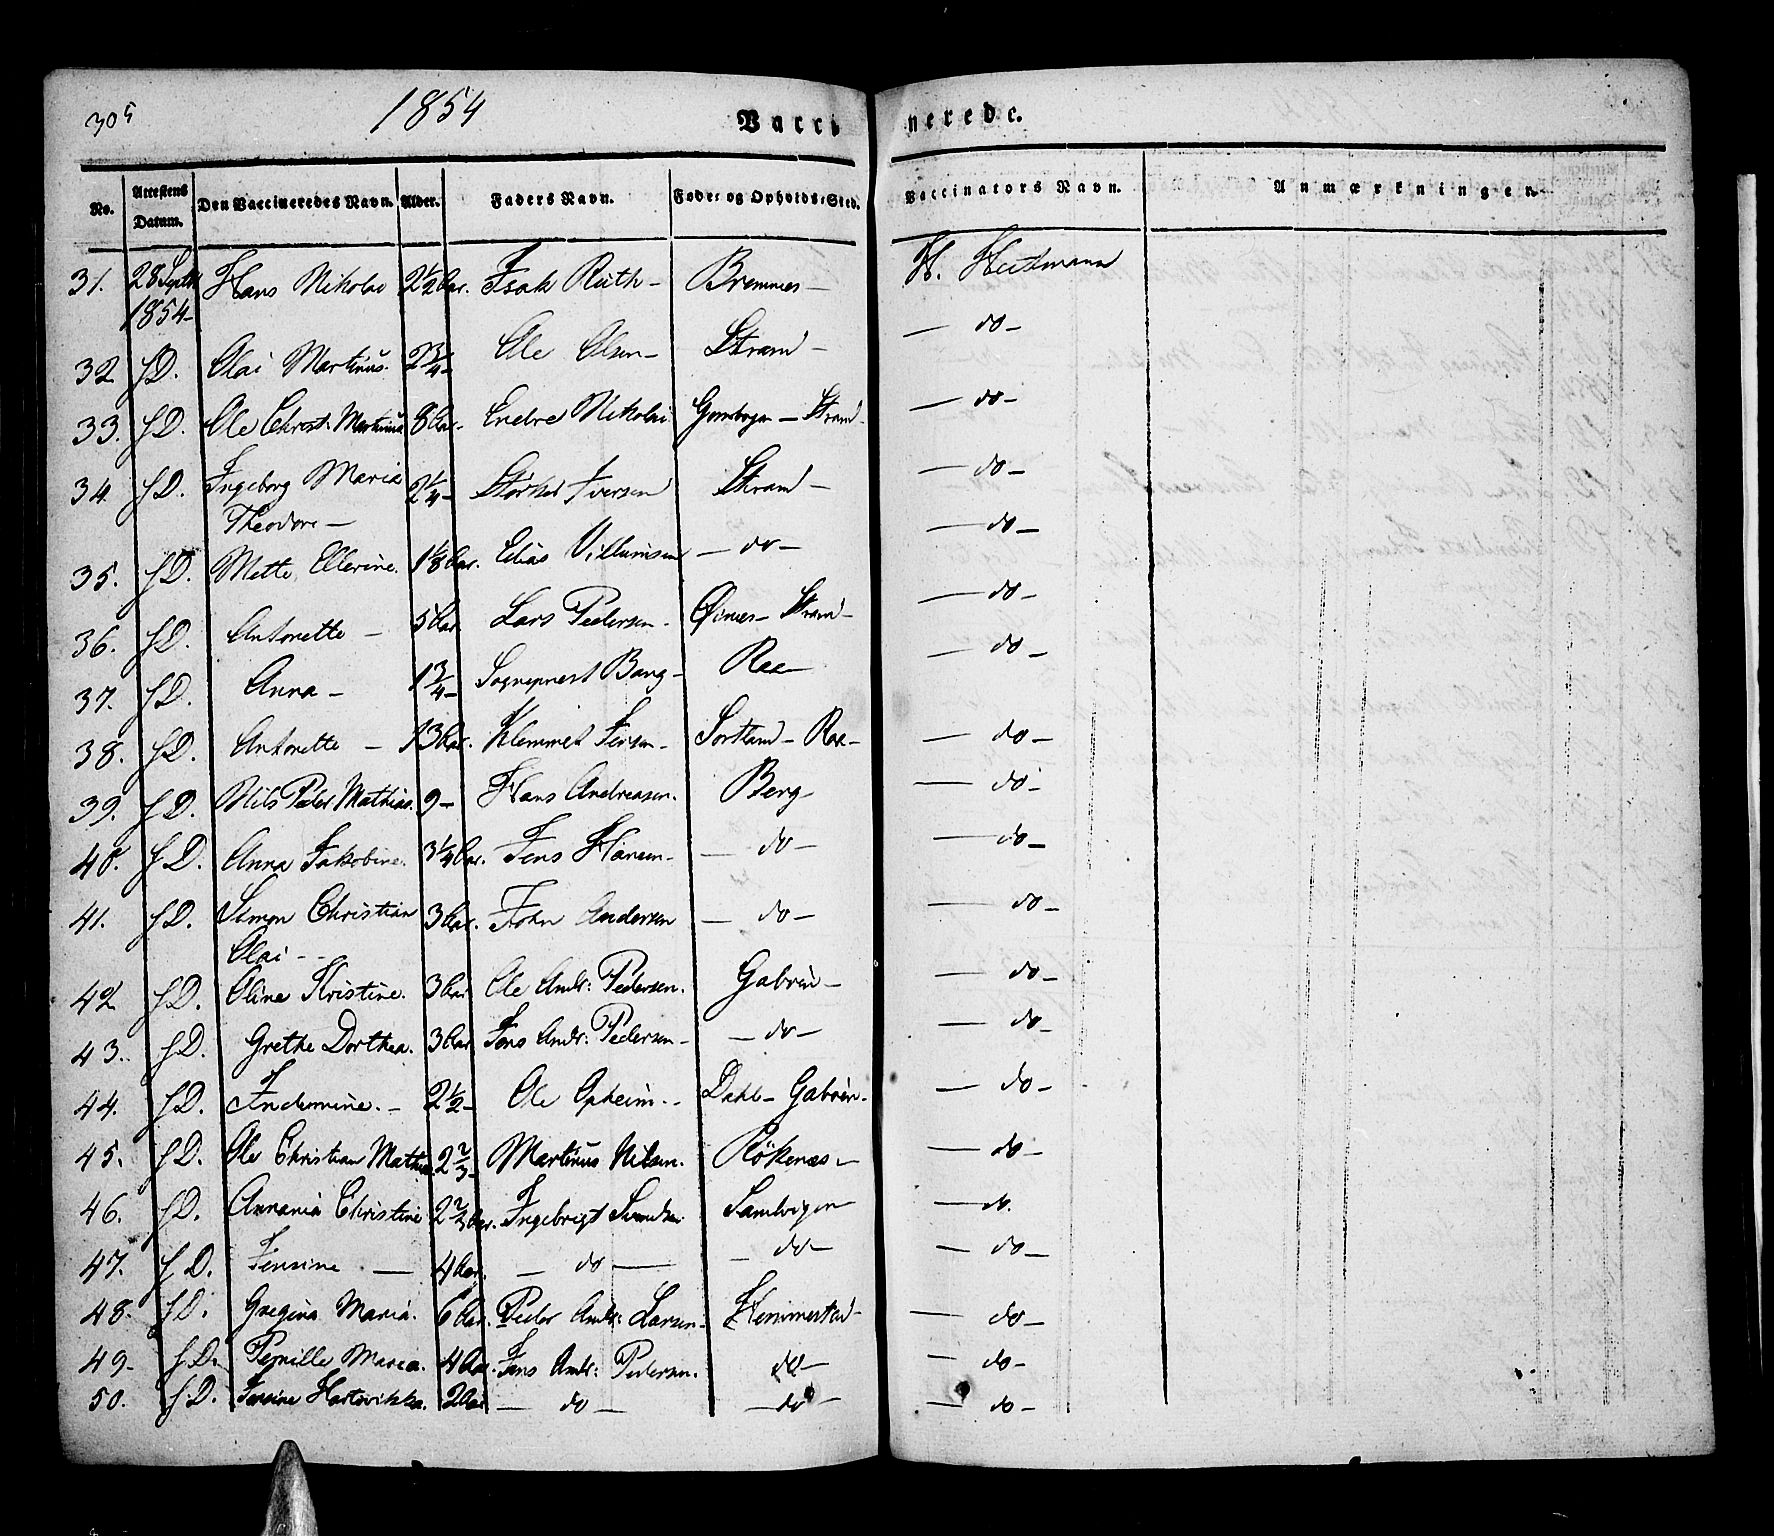 305
1854
Vacci nerede.
No. Attestens Datum. Den Vaccineredes Navn. Alder. Faders Navn. Føde- og Opholds-Sted. Vaccinators Navn. Anmærkninger.
31. 28 Septb 1854 Hans Nikolai 2 1/2 Aar. Isak Ruth - Bremnes - H. Heitmann
32 s.D. Olai Martinus. 2 3/4 - Ole Olsen - Strand - - do -
33. s.D. Ole Christ. Martinus 8 Aar. Endre Nikolai - Strand - do -
34 s.D. Ingeborg Maria 2 1/4 - Storker Iversen Strand - - do -
Theodore -
35. s.D. Mette Ellerine. 1 1/8 Aar. Elias Villumsen - do - - do -
36. s.D. Antonette - 5 Aar Lars Pedersen - Øinæs - Strand - - do -
37. s.D. Anna - 1 3/4 - Sognepræst Bang - Rae - - do -
38. s.D. Antonette - 13 Aar. Klemmet Jensen - Sortland - Rae - - do -
39. s.D. Nils Peder Mathias. 9 - Hans Andreasen. Berg - - do -
40. s.D. Anna Jakobine. 3 1/4 Aar. Jens Hansen - - do - - do -
41. s.D. Simon Christian 3 Aar. John Andersen - do - - do -
Olai -
42 s.D. Oline Kristine. 3 Aar Ole Andr: Pedersen. Gabriel - - do -
43. s.D. Grethe Dorthea. 3 Aar Jens Andr: Pedersen - - do - - do -
44. s.D. Indemine. - 2 1/2 - Ole Opheim - Dahl - - do -
45. s.D. Ole Christian Mathias 2 2/3 - Martinus Nilsen. Rökenæs - - do -
46. s.D. Annania Christine 2 2/3 Aar. Ingebrigt Svendsen Sandvigen - do.
47. s.D. Jensine - 4 Aar. - do - - do - - do -
48. s.D. Gregina Maria. 6 Aar. Peder Andr: Larsen - Hemmestad - - do -
49 - s.D. Pernille Maria. 4 Aar. Jens Andr: Pedersen. do - - do -
50. s.D. Jensine Hartvikka. 2 Aar - do - - do - - do -